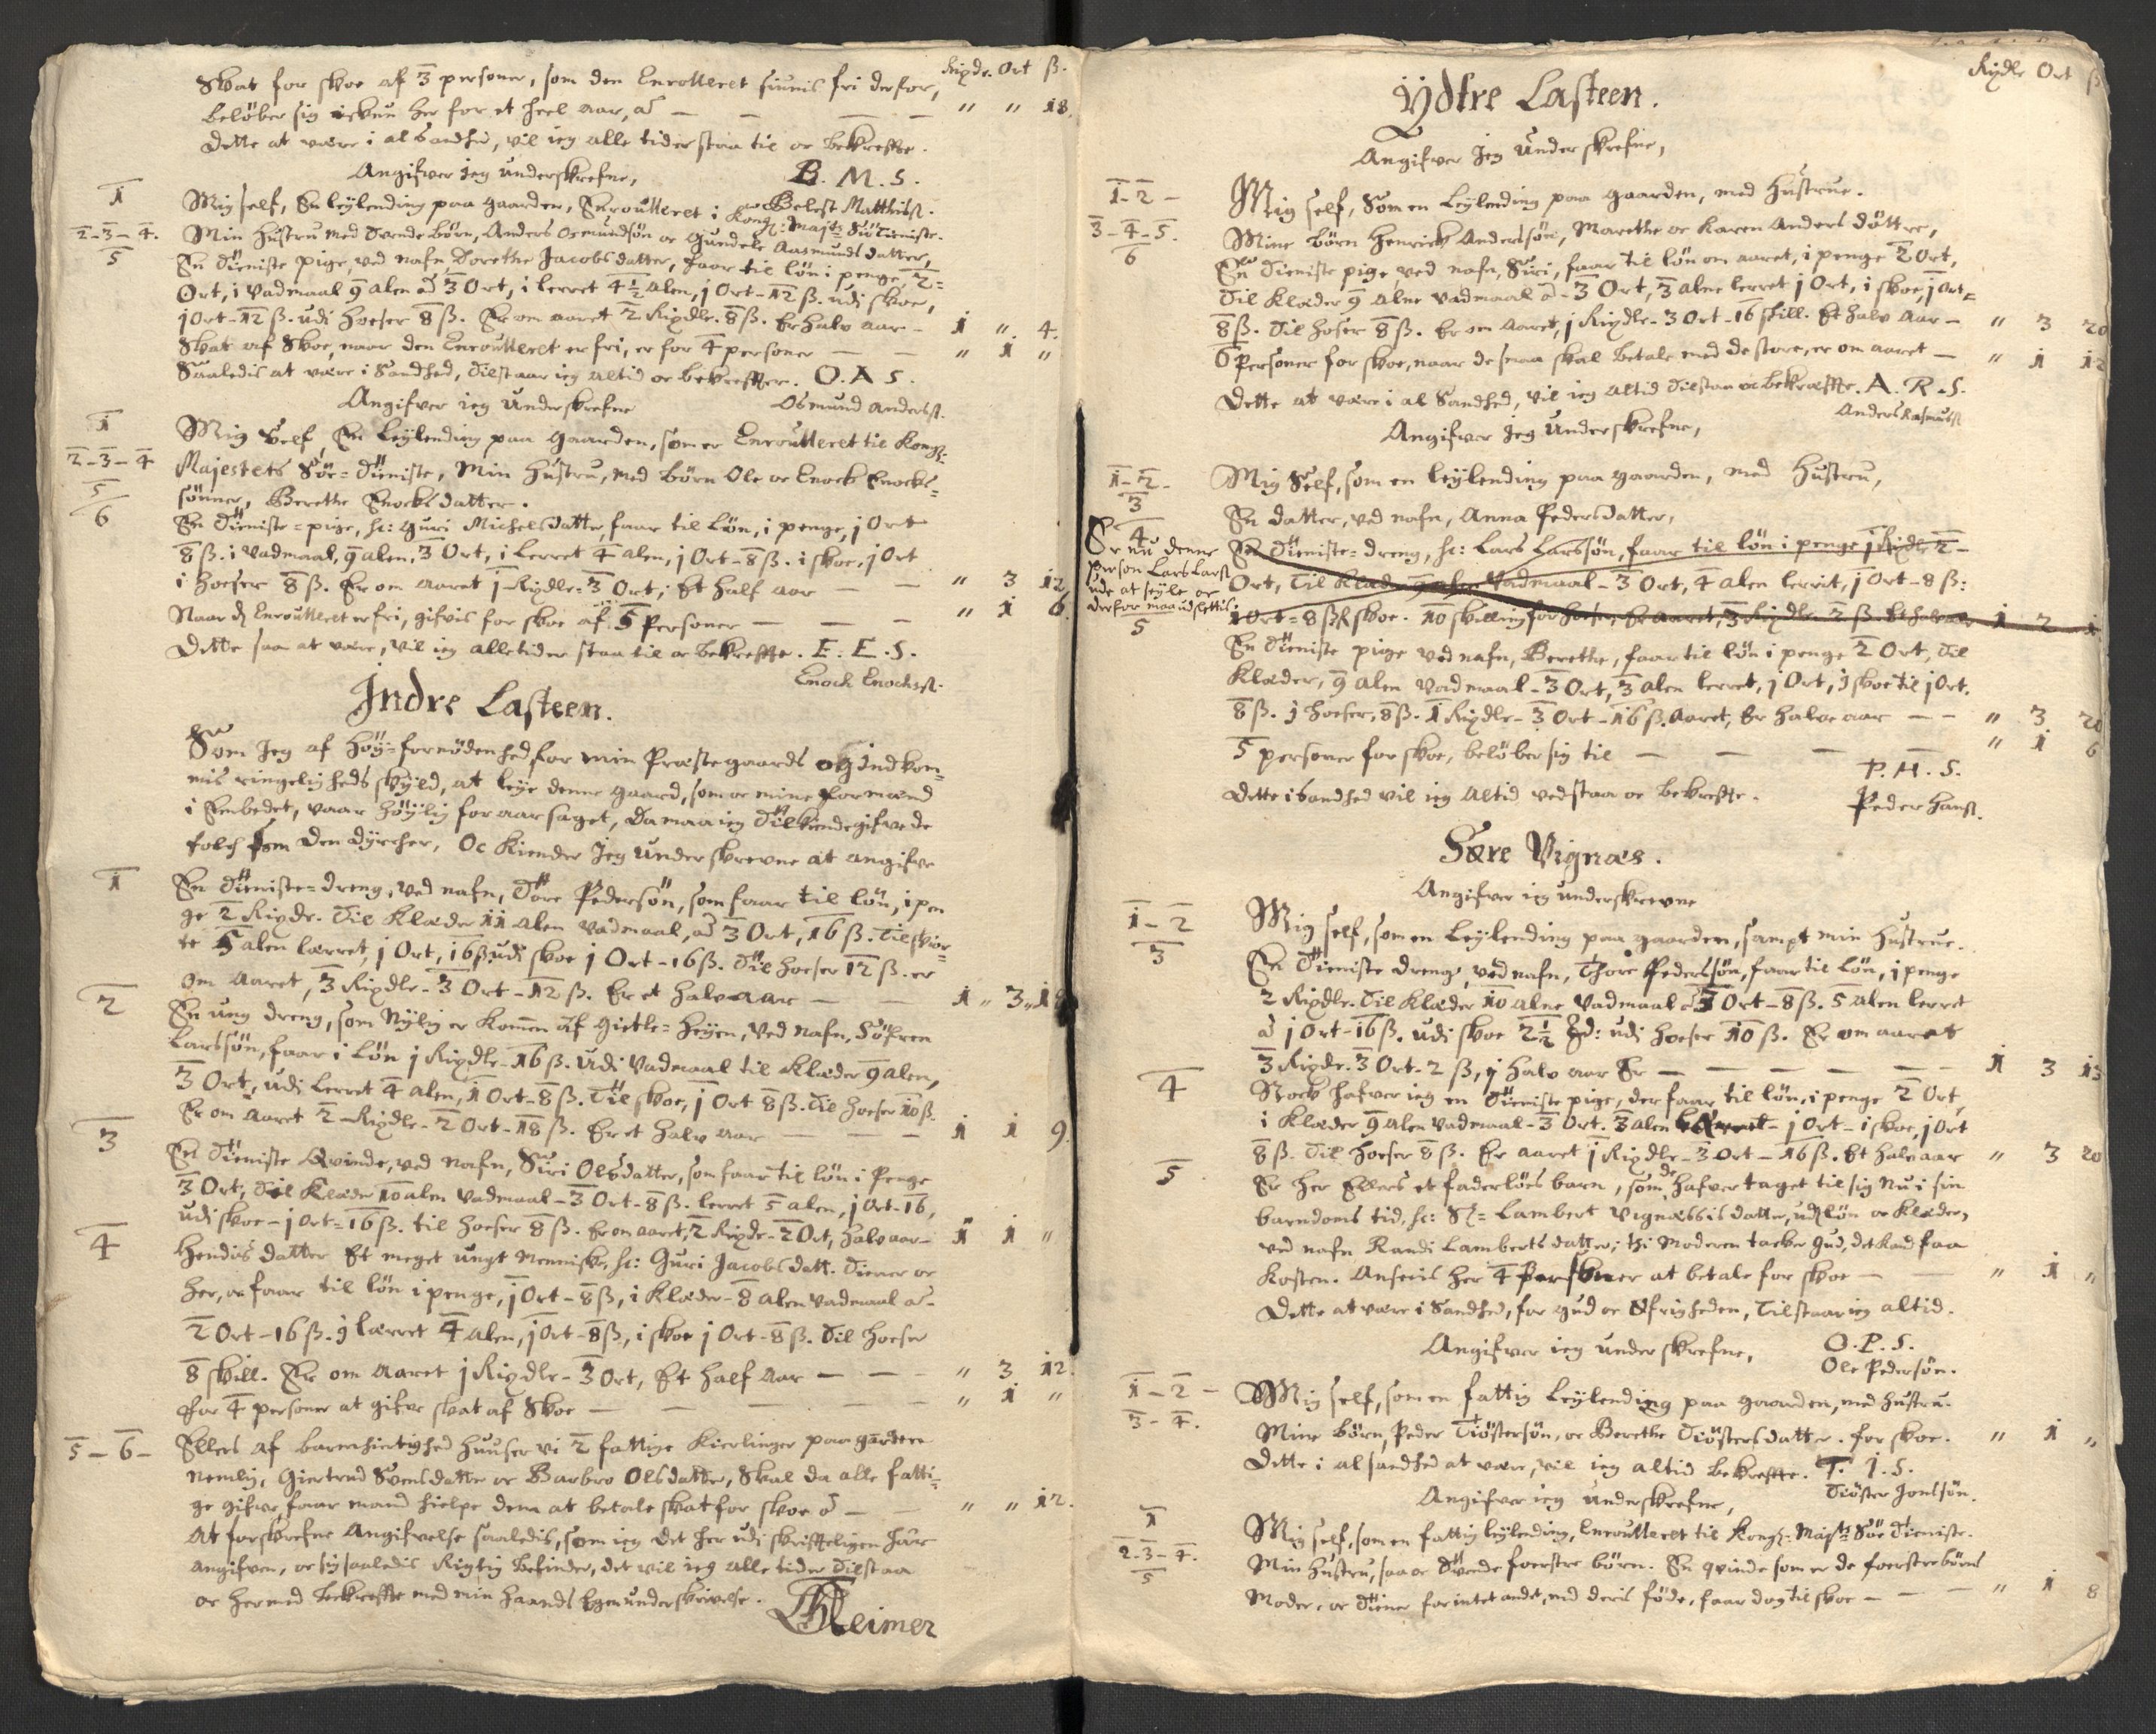 Rixdr. Ort ß.
Skat for skoe af 3 personer, som den Enrolleret siunis fri derfor,
beløber sig ickun her for et heel aar, ad — — — — " " 18.
Dette at være i al Sandhed, vil ieg alle tider staa til oc bekreffte.
Angifver ieg underskrefne, B. M. S.
Belest Matthisß.
1 Mig self, En leylending paa gaarden, Enroulleret i Kong: Majts Søe Tieniste.
2-3-4. Min Hustru med Tvende børn, Anders Osmundsøn oc Gundele Aasmunds datter,
5 En Tieniste pige, ved nafn Dorethe Jacobs datter, faar til løn i penge 2
Ort, i Vadmaal 9 alen ad 3 Ort, i lerret 4½ alen, j Ort-12 ß. udi skoe,
j Ort-12 ß. udi hoeser 8 ß. Er om aaret 2 Rixdlr. 8 ß. Er halv aar — 1 " 4.
Skat af Skoe, naar den Enroulleret er fri, er for 4 personer — — " 1 "
Saaledis at være i Sandhed, Tilstaar ieg altid oc bekreffter. O. A S.
Angifver ieg underskrefne Osmund andersß.
1 Mig Self, En leylending paa gaarden, som er Enroulleret til Kong:
2-3-4 Majestets Søe-Tieniste, Min Hustru, med børn Ole oc Enock Enocks-
5 sønner, Berethe Enocks datter.
6 En Tieniste-pige, h: Guri Michelsdatter, faar til løn, i penge, j Ort
8 ß. i Vadmaal, 9 alen, 3 Ort, i lerret 4 alen, j Ort-8 ß. i skoe, j Ort
i hoeser 8 ß. Er om aaret 1 Rixdlr-3 Ort, Et half aar — — " 3 12
Naar den Enroulleret er fri, gifvis for skoe af 5 Personer — — — " 1 6.
Dette saa at være, vil ieg alletider staa til oc bekreffte. E. E. S.
Enoch Enochsß.
Indre Lasteen.
Som Jeg af høy-fornødenhed, for min Præstegaards og Indkom-
mis ringeligheds skyld, at leye denne gaard, som oc mine formænd
i Embedet, vaar høylig foraarsaget, Da maa ieg Tilkiendegifve de
folch som den dyrcker, Oc kiender Jeg underskrevne at angifve
1 En Tieniste-dreng, ved nafn, Tore Pedersøn, som faar til løn, i pen
ge 2 Rixdr. Til Klæder 11 alen Vadmaal, ad 3 Ort, 16 ß. Til skior-
te 5 alen lærret, j Ort, 16 ß udi skoe j Ort-16 ß. Til hoeser 12 ß. er
om Aaret, 3 Rixdlr-3 Ort-12 ß. Er et halv aar — — 1 " 3 " 18
2 En ung dreng, som Nylig er kommen af Gietle-Heyen, ved nafn, Søfren
Larssøn, faar i løn j Rixdlr-16 ß. udi Vadmaal til Klæder 9 alen,
3 Ort, udi lerret 4 alen, 1 Ort-8 ß. Til skoe, j Ort 8 ß. Til hoeser 10 ß.
Er om aaret 2-Rixdlr-2 Ort-18 ß. Er et halv aar — — — 1 1 9.
3 En Tieniste Qvinde, ved nafn, Siri Olsdatter, som faar til løn i Penge
3 Ort, Til Klæder 10 alen Vadmaal-3 Ort-8 ß. lerret 5 alen, j Ort-16,
udi skoe-j Ort-16 ß. til hoeser 8 ß. Er om aaret, 2 Rixdr-2 Ort, halv aar — 1 1 "
4 Hendis datter Et meget ungt Menniske, h: Guri Jacobs datt. Tiener oc
her, oc faar til løn i penge, j Ort-8 ß, i Klæder-8 alen Vadmaal ad-
2 Ort-16 ß. j lærret 4 alen, j Ort-8 ß, i skoe j Ort-8 ß. Til hoeser
8 skill. Er om aaret j Rixdlr-3 Ort, Et half aar — — — " 3 12.
for 4 personer at gifve skat af Skoe — — — — " 1 "
5-6- Ellers af barmhiertighed huuser vi 2 fattige Kierlinger paa gaarden
Nemlig, Giertrud Svensdatter oc Barbro Olsdatter, Skal da alle fatti-
ge gifve, faar mand hielpe dem at betale skat for skoe ad — — " " 12.
At forskrefne Angifvelse saaledis, som ieg det her udi skriffteligen haver
angifven, oc sig saaledis Rigtig befinder, det vil ieg alle tider Tilstaa
oc hermed bekreffte med min haands Egen underskrivelse.
Reimer
Rixdlr Ort ß
Ydtre Lasteen.
Angifver Jeg underskrefne,
1-2- Mig self, Som en Leylending paa gaarden, med Hustrue.
3-4-5. Mine børn Henrick Anderssøn, Marethe oc Karen Anders døttre,
6 En Tieniste pige, ved nafn, Siri, faar til løn om aaret, i penge 2 Ort,
Til Klæder 9 alne Vadmaal ad-3 Ort, 3 alne lerret j Ort, i skoe, j Ort-
8 ß. Til hoser 8 ß. Er om Aaret, j Rixdlr-3 Ort-16 skill. Et halv Aar — " 3 20
6 Personer for skoe, naar de smaa skal betale med de store, er om aaret — " 1 12
Dette at være i al Sandhed, vil ieg altid Tilstaa oc bekreffte. A. R. S.
Anders Rasmusß
Angifver Jeg underskrefne,
1-2- Mig Self, som en leylending paa gaarden, med Hustru,
3 En datter, ved nafn, Anna Pedersdatter,
4 En Tieniste-dreng, h: Lars Larssøn, faar til løn i penge j Rixdlr 2-
Er nu denne
person Lars Larsß
ude at seyle oc
derfor maa udslettis.
Ort, Til Klæder 9 alen Vadmaal-3 Ort, 4 alen lerrit, j Ort-8 ß:
1 Ort-8 ß skoe. 10 skelling for hoeser, Er aaret, 3 Rixdlr-2 ß. Et halv aar 1 2 1
5 En Tieniste pige ved nafn, Berethe, faar til løn i penge 2 Ort, Til
Klæder, 9 alen Vadmaal-3 Ort, 3 alen lerret, j Ort, i skoe til j Ort.
8 ß. j hoeser, 8 ß. 1 Rixdlr-3 Ort-16 ß. Aaret, Er halve aar — — " 3 20
5 personer for skoe, beløber sig til — — — — " 1 6
P. H. S.
Dette i Sandhed vil ieg altid vedstaa oc bekreffte. Peder Hanß.
Søre Vignæs.
Angifver ieg underskrevne
1-2 Mig self, som en Leylending paa gaarden, sampt min Hustrue.
3 En Tieniste dreng, ved nafn, Thore Pederssøn, faar til løn, i penge
2 Rixdlr. Til Klæder 10 alne Vadmaal ad 3 Ort-8 ß. 5 alen lerret
ad j Ort-16 ß. udi skoe 2½ d: udi hoeser 10 ß. Er om aaret
3 Rixdr. 3 Ort-2 ß, j halv aar Er — — — — — 1 3 13
4 Noch hafver ieg en Tieniste pige, der faar til løn, i penge 2 Ort,
i Klæder 9 alen Vadmaal-3 Ort. 3 alen lerret-j Ort-i skoe, j Ort
8 ß. Til hoeser 8 ß. Er aaret j Rixdlr-3 Ort-16 ß. Et halv aar " 3 20
5 Er her Ellers et faderløes barn, som de hafver taget til sig Nu i sin
barndoms tid, h: Sl: Lambert Vignæssis datter, uden løn oc Klæder,
ved nafn Randi Lamberts datter; thi Moderen tacker Gud, det kand faa
kosten. Ansees her 4 Personer at betale for skoe — — " 1 "
Dette at være i Sandhed, for Gud oc Øfrigheden, Tilstaar ieg altid.
Angifver ieg underskrefne, O. P. S.
Ole Pedersøn.
1-2- Mig self, som en fattig Leylending paa gaarden, med hustru.
3-4. Mine børn, Peder Tiøstersøn, oc Berethe Tiøstersdatter. for skoe. " 1 "
Dette i al sandhed at være, vil ieg altid bekreffte. T. I. S.
Angifver ieg underskrefne, Tiøster Jonssøn.
1 Mig self, som en fattig leylending, Enroulleret til Kong: Majts Søe Tieniste.
2-3-4. Min Hustru, saa oc Tvende foerstre børn. En qvinde som er de foerstre børns
5 Moder, oc Tiener for intet andet, end deris føde, faar dog til skoe — — — " 1 8